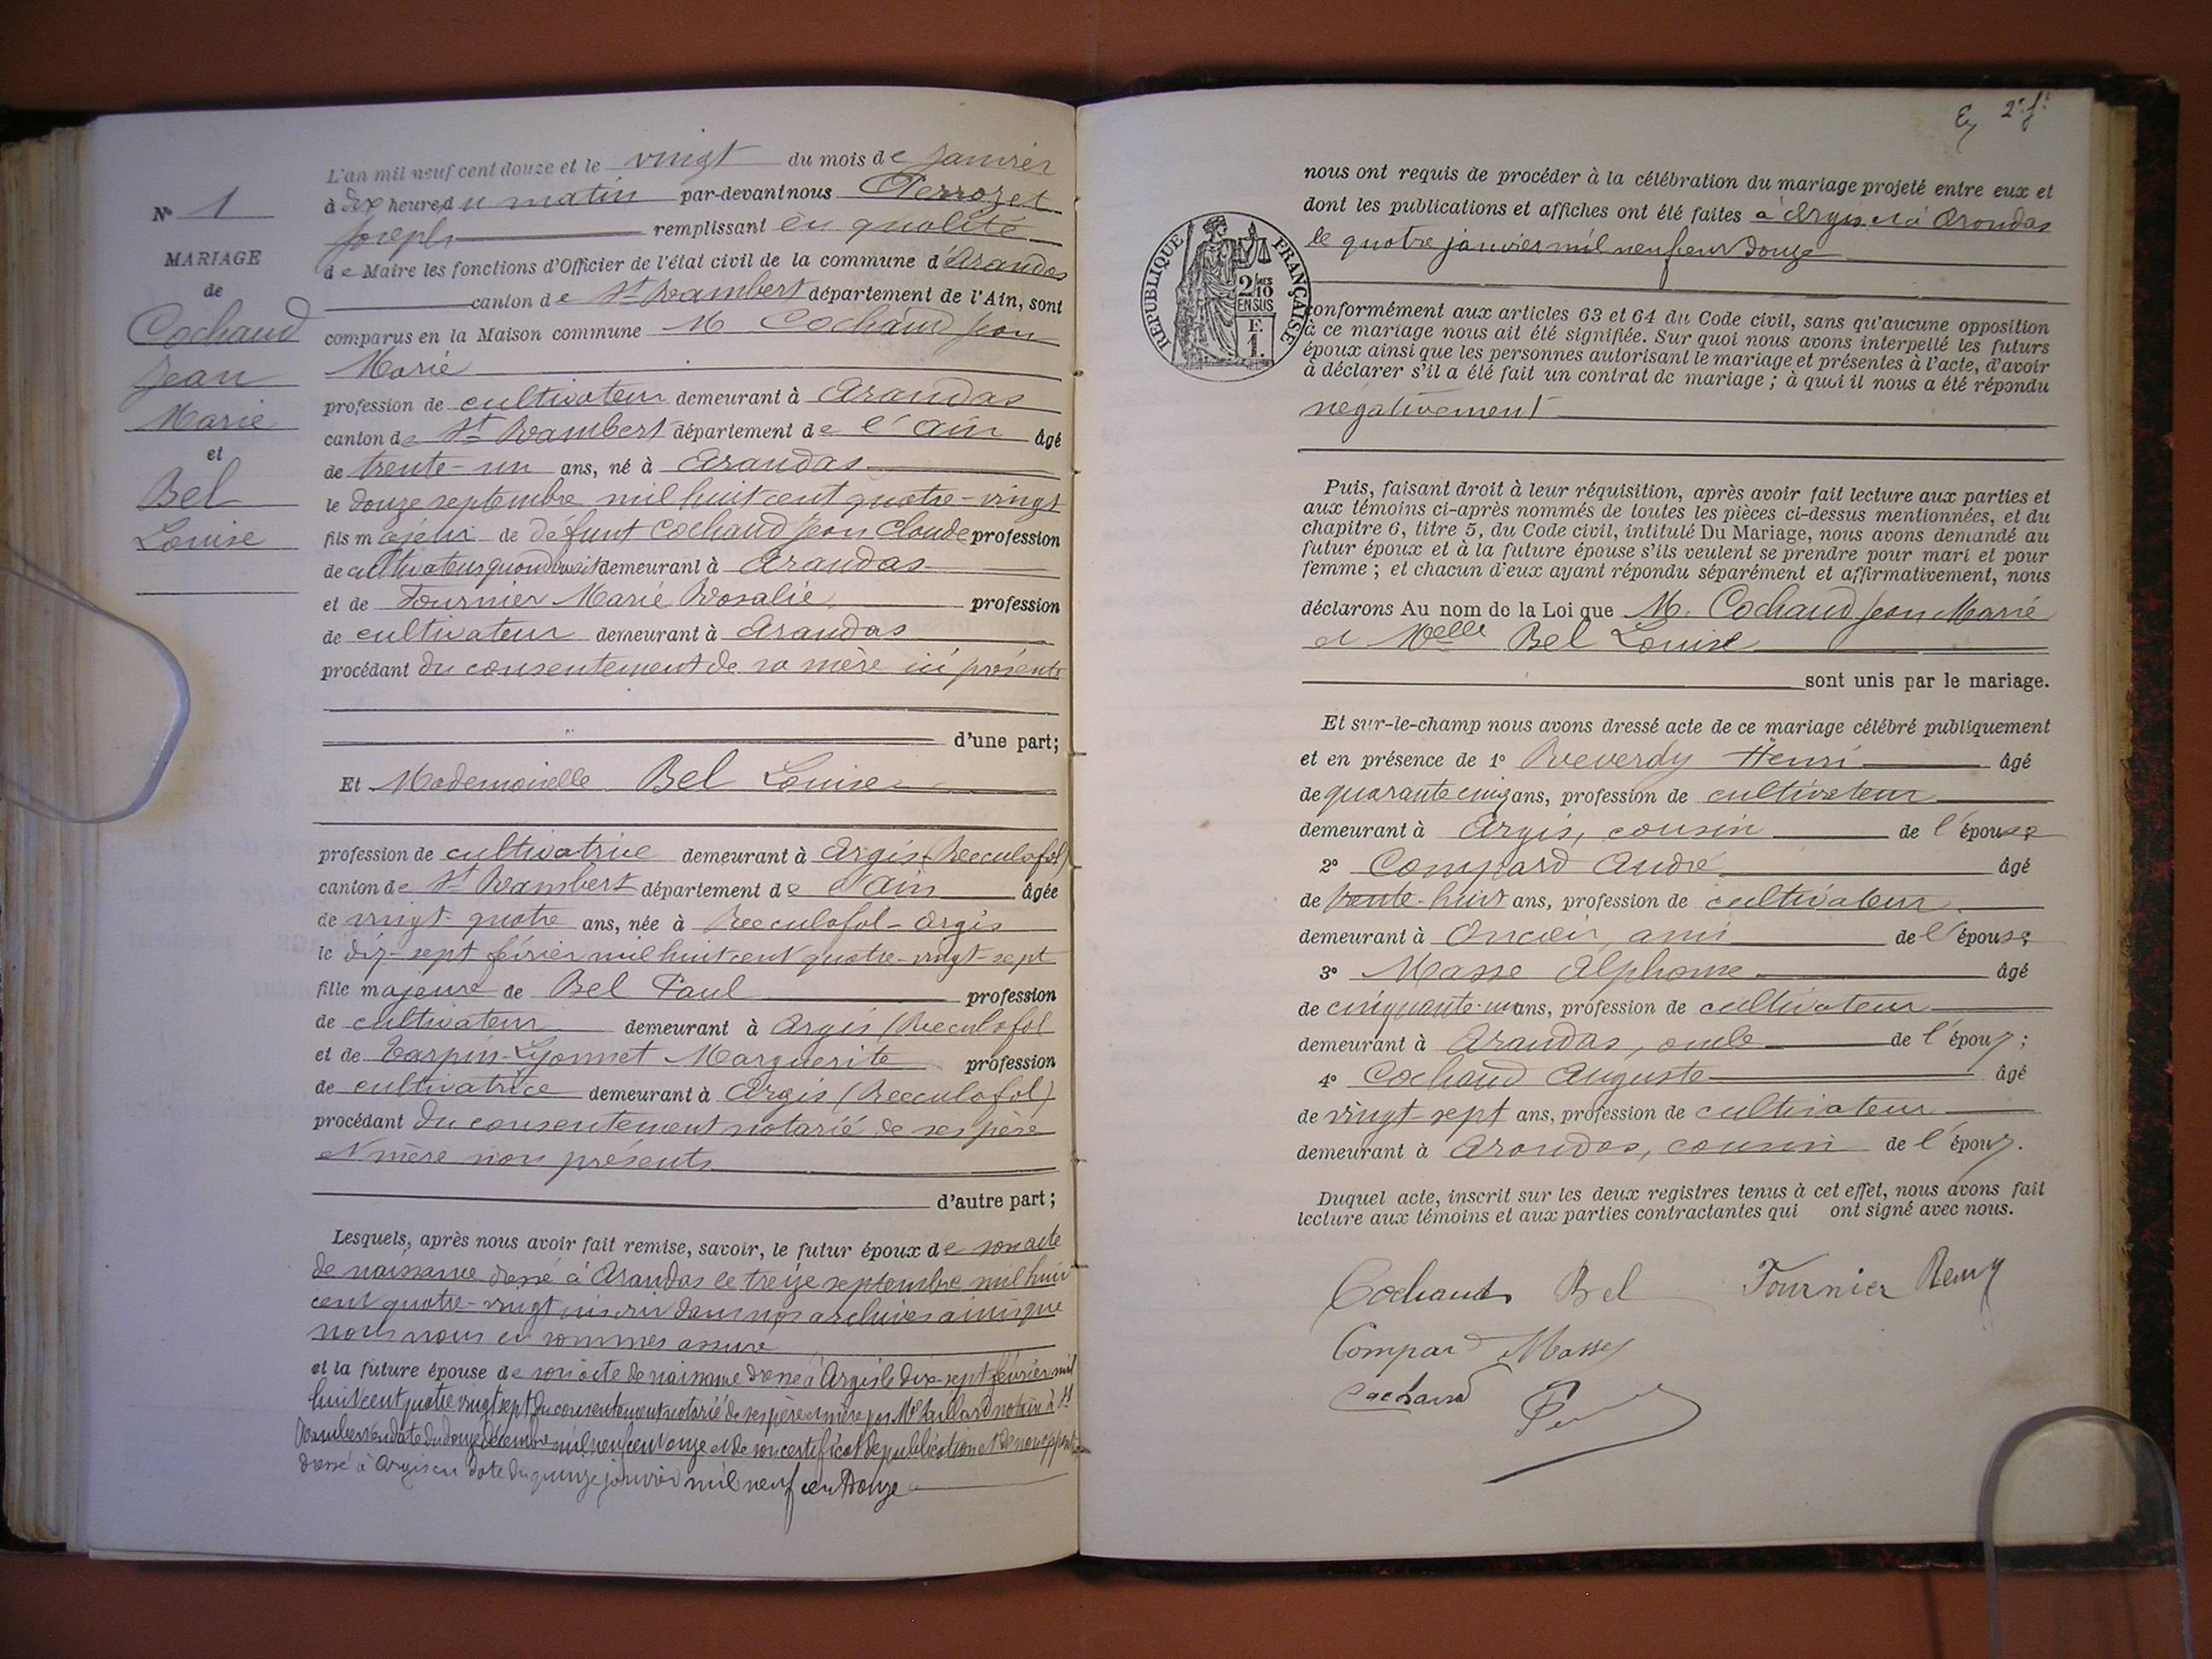 N° 1
MARIAGE
de
Cochaud
Jean
Marie
et
Bel
Louise
L'an mil neuf cent douze et le vingt du mois de janvier
à dix heures du matin par-devant nous Perrozet
Joseph remplissant en qualité
de Maire les fonctions d'Officier de l'état civil de la commune d'Arandas
canton de St Rambert département de l'Ain, sont
comparus en la Maison commune M Cochaud Jean
Marie
profession de cultivateur demeurant à Arandas
canton de St Rambert département de l'ain âgé
de trente-un ans, né à Arandas
le douze septembre mil huit cent quatre-vingt
fils majeur de défunt Cochaud Jean Claude profession
de cultivateur quand vivait demeurant à Arandas
et de Fournier Marie Rosalie profession
de cultivateur demeurant à Arandas
procédant du consentement de sa mère ici présente
d'une part;
Et Mademoiselle Bel Louise
profession de cultivatrice demeurant à Argis (Reculafol)
canton de St Rambert département de l'ain âgée
de vingt-quatre ans, née à Reculafol-Argis
le dix-sept février mil huit cent quatre-vingt-sept
fille majeure de Bel Paul profession
de cultivateur demeurant à Argis (Reculafol
et de Tarpin-Lyonnet Marguerite profession
de cultivatrice demeurant à Argis (Reculafol)
procédant du consentement notarié de ses père
et mère non présents
d'autre part;
Lesquels, après nous avoir fait remise, savoir, le futur époux de son acte
de naissance dressé à Arandas le treize septembre mil huit
cent quatre-vingt inscrit dans nos archives ainsi que
nous nous en sommes assuré
et la future épouse de son acte de naissance dressé à Argis le dix-sept février mil
huit cent quatre vingt sept du consentement notarié de ses père et mère par Me notaire à St
Rambert en date du douze décembre mil neuf cent onze et de son certificat de publication et de non oppon
dressé à Argis en date du quinze janvier mil neuf cent douze
2e f.
nous ont requis de procéder à la célébration du mariage projeté entre eux et
dont les publications et affiches ont été faites à Argis et à Arandas
le quatre janvier mil neuf cent douze
REPUBLIQUE FRANÇAISE
2/10
EN SUS
F.
1.
conformément aux articles 63 et 64 du Code civil, sans qu'aucune opposition
à ce mariage nous ait été signifiée. Sur quoi nous avons interpellé les futurs
époux ainsi que les personnes autorisant le mariage et présentes à l'acte, d'avoir
à déclarer s'il a été fait un contrat de mariage; à quoi il nous a été répondu
négativement
Puis, faisant droit à leur réquisition, après avoir fait lecture aux parties et
aux témoins ci-après nommés de toutes les pièces ci-dessus mentionnées, et du
chapitre 6, titre 5, du Code civil, intitulé Du Mariage, nous avons demandé au
futur époux et à la future épouse s'ils veulent se prendre pour mari et pour
femme; et chacun d'eux ayant répondu séparément et affirmativement, nous
déclarons Au nom de la Loi que M. Cochaud Jean Marie
et Melle Bel Louise
sont unis par le mariage.
Et sur-le-champ nous avons dressé acte de ce mariage célébré publiquement
et en présence de 1° Reverdy Henri âgé
de quarante cinq ans, profession de cultivateur
demeurant à Argis, cousin de l'épouse
2° Compard André âgé
de trente-huit ans, profession de cultivateur
demeurant à Oncieu, ami de l'épouse;
3° Masse Alphonse âgé
de cinquante-un ans, profession de cultivateur
demeurant à Arandas, oncle de l'époux;
4° Cochaud Auguste âgé
de vingt-sept ans, profession de cultivateur
demeurant à Arandas, cousin de l'époux.
Duquel acte, inscrit sur les deux registres tenus à cet effet, nous avons fait
lecture aux témoins et aux parties contractantes qui ont signé avec nous.
Cochaud Bel Fournier
Compard Masse
Cochaud